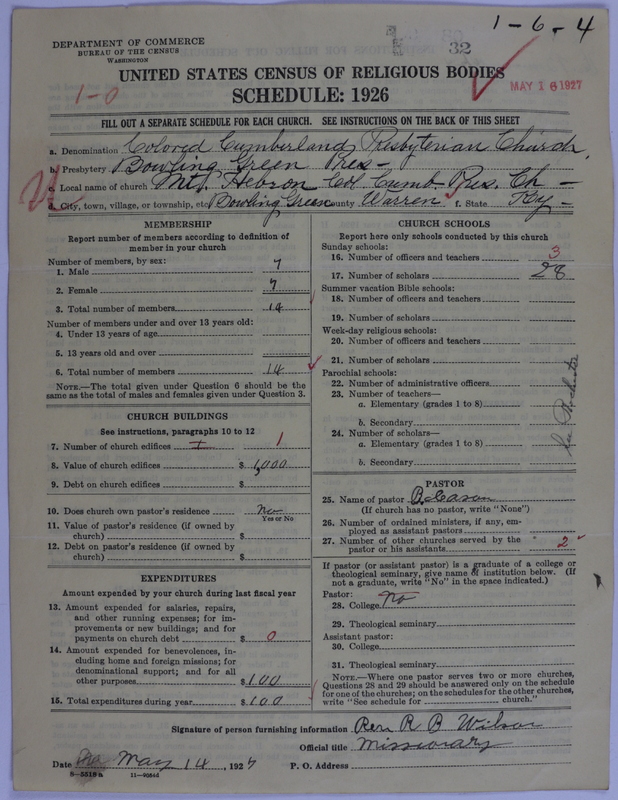 1-6-4
32
DEPARTMENT OF COMMERCE
BUREAU OF THE CENSUS
WASHINGTON
UNITED STATES CENSUS OF RELIGIOUS BODIES
SCHEDULE: 1926
1-0
MAY 16 1927
FILL OUT A SEPARATE SCHEDULE FOR EACH CHURCH. SEE INSTRUCTIONS ON THE BACK OF THIS SHEET
a. Denomination Colored Cumberland Presbyterian Church,
b. Presbytery Bowling Green Pres-
c. Local name of church Mt. Hebron Col Cumb Pres. Ch -
d. City, town, village, or township, etc Bowling Green county Warren f. State Ky-
MEMBERSHIP
Report number of members according to definition of
member in your church
Number of members, by sex:
1. Male 7
2. Female 7
3. Total number of members 14
Number of members under and over 13 years old:
4. Under 13 years of age
5. 13 years old and over
6. Total number of members 14
NOTE.—The total given under Question 6 should be the
same as the total of males and females given under Question 3.
CHURCH BUILDINGS
See instructions, paragraphs 10 to 12
7. Number of church edifices 1 1
8. Value of church edifices $ 1,000
9. Debt on church edifices $
10. Does church own pastor's residence No
Yes or No
11. Value of pastor's residence (if owned by
church) $
12. Debt on pastor's residence (if owned by
church) $
EXPENDITURES
Amount expended by your church during last fiscal year
13. Amount expended for salaries, repairs,
and other running expenses; for im-
provements or new buildings; and for
payments on church debt $ 0
14. Amount expended for benevolences, in-
cluding home and foreign missions; for
denominational support; and for all
other purposes $ 1.00
15. Total expenditures during year $ 1.00
CHURCH SCHOOLS
Report here only schools conducted by this church
Sunday schools:
16. Number of officers and teachers 3
17. Number of scholars 28
Summer vacation Bible schools:
18. Number of officers and teachers
19. Number of scholars
Week-day religious schools:
20. Number of officers and teachers
21. Number of scholars
Parochial schools:
22. Number of administrative officers
23. Number of teachers—
a. Elementary (grades 1 to 8)
b. Secondary
24. Number of scholars—
a. Elementary (grades 1 to 8)
b. Secondary
PASTOR
25. Name of pastor
(If church has no pastor, write "None")
26. Number of ordained ministers, if any, em-
ployed as assistant pastors
27. Number of other churches served by the
pastor or his assistants "2"
If pastor (or assistant pastor) is a graduate of a college or
theological seminary, give name of institution below. (If
not a graduate, write "No" in the space indicated.)
Pastor:
28. College No
29. Theological seminary
Assistant pastor:
30. College
31. Theological seminary
NOTE.—Where one pastor serves two or more churches,
Questions 28 and 29 should be answered only on the schedule
for one of the churches; on the schedules for the other churches,
write "See schedule for church."
Signature of person furnishing information Rev. R B Wilson
Official title Missionary
Date May 14, 1927 P. O. Address
8-5518a 11-9064d